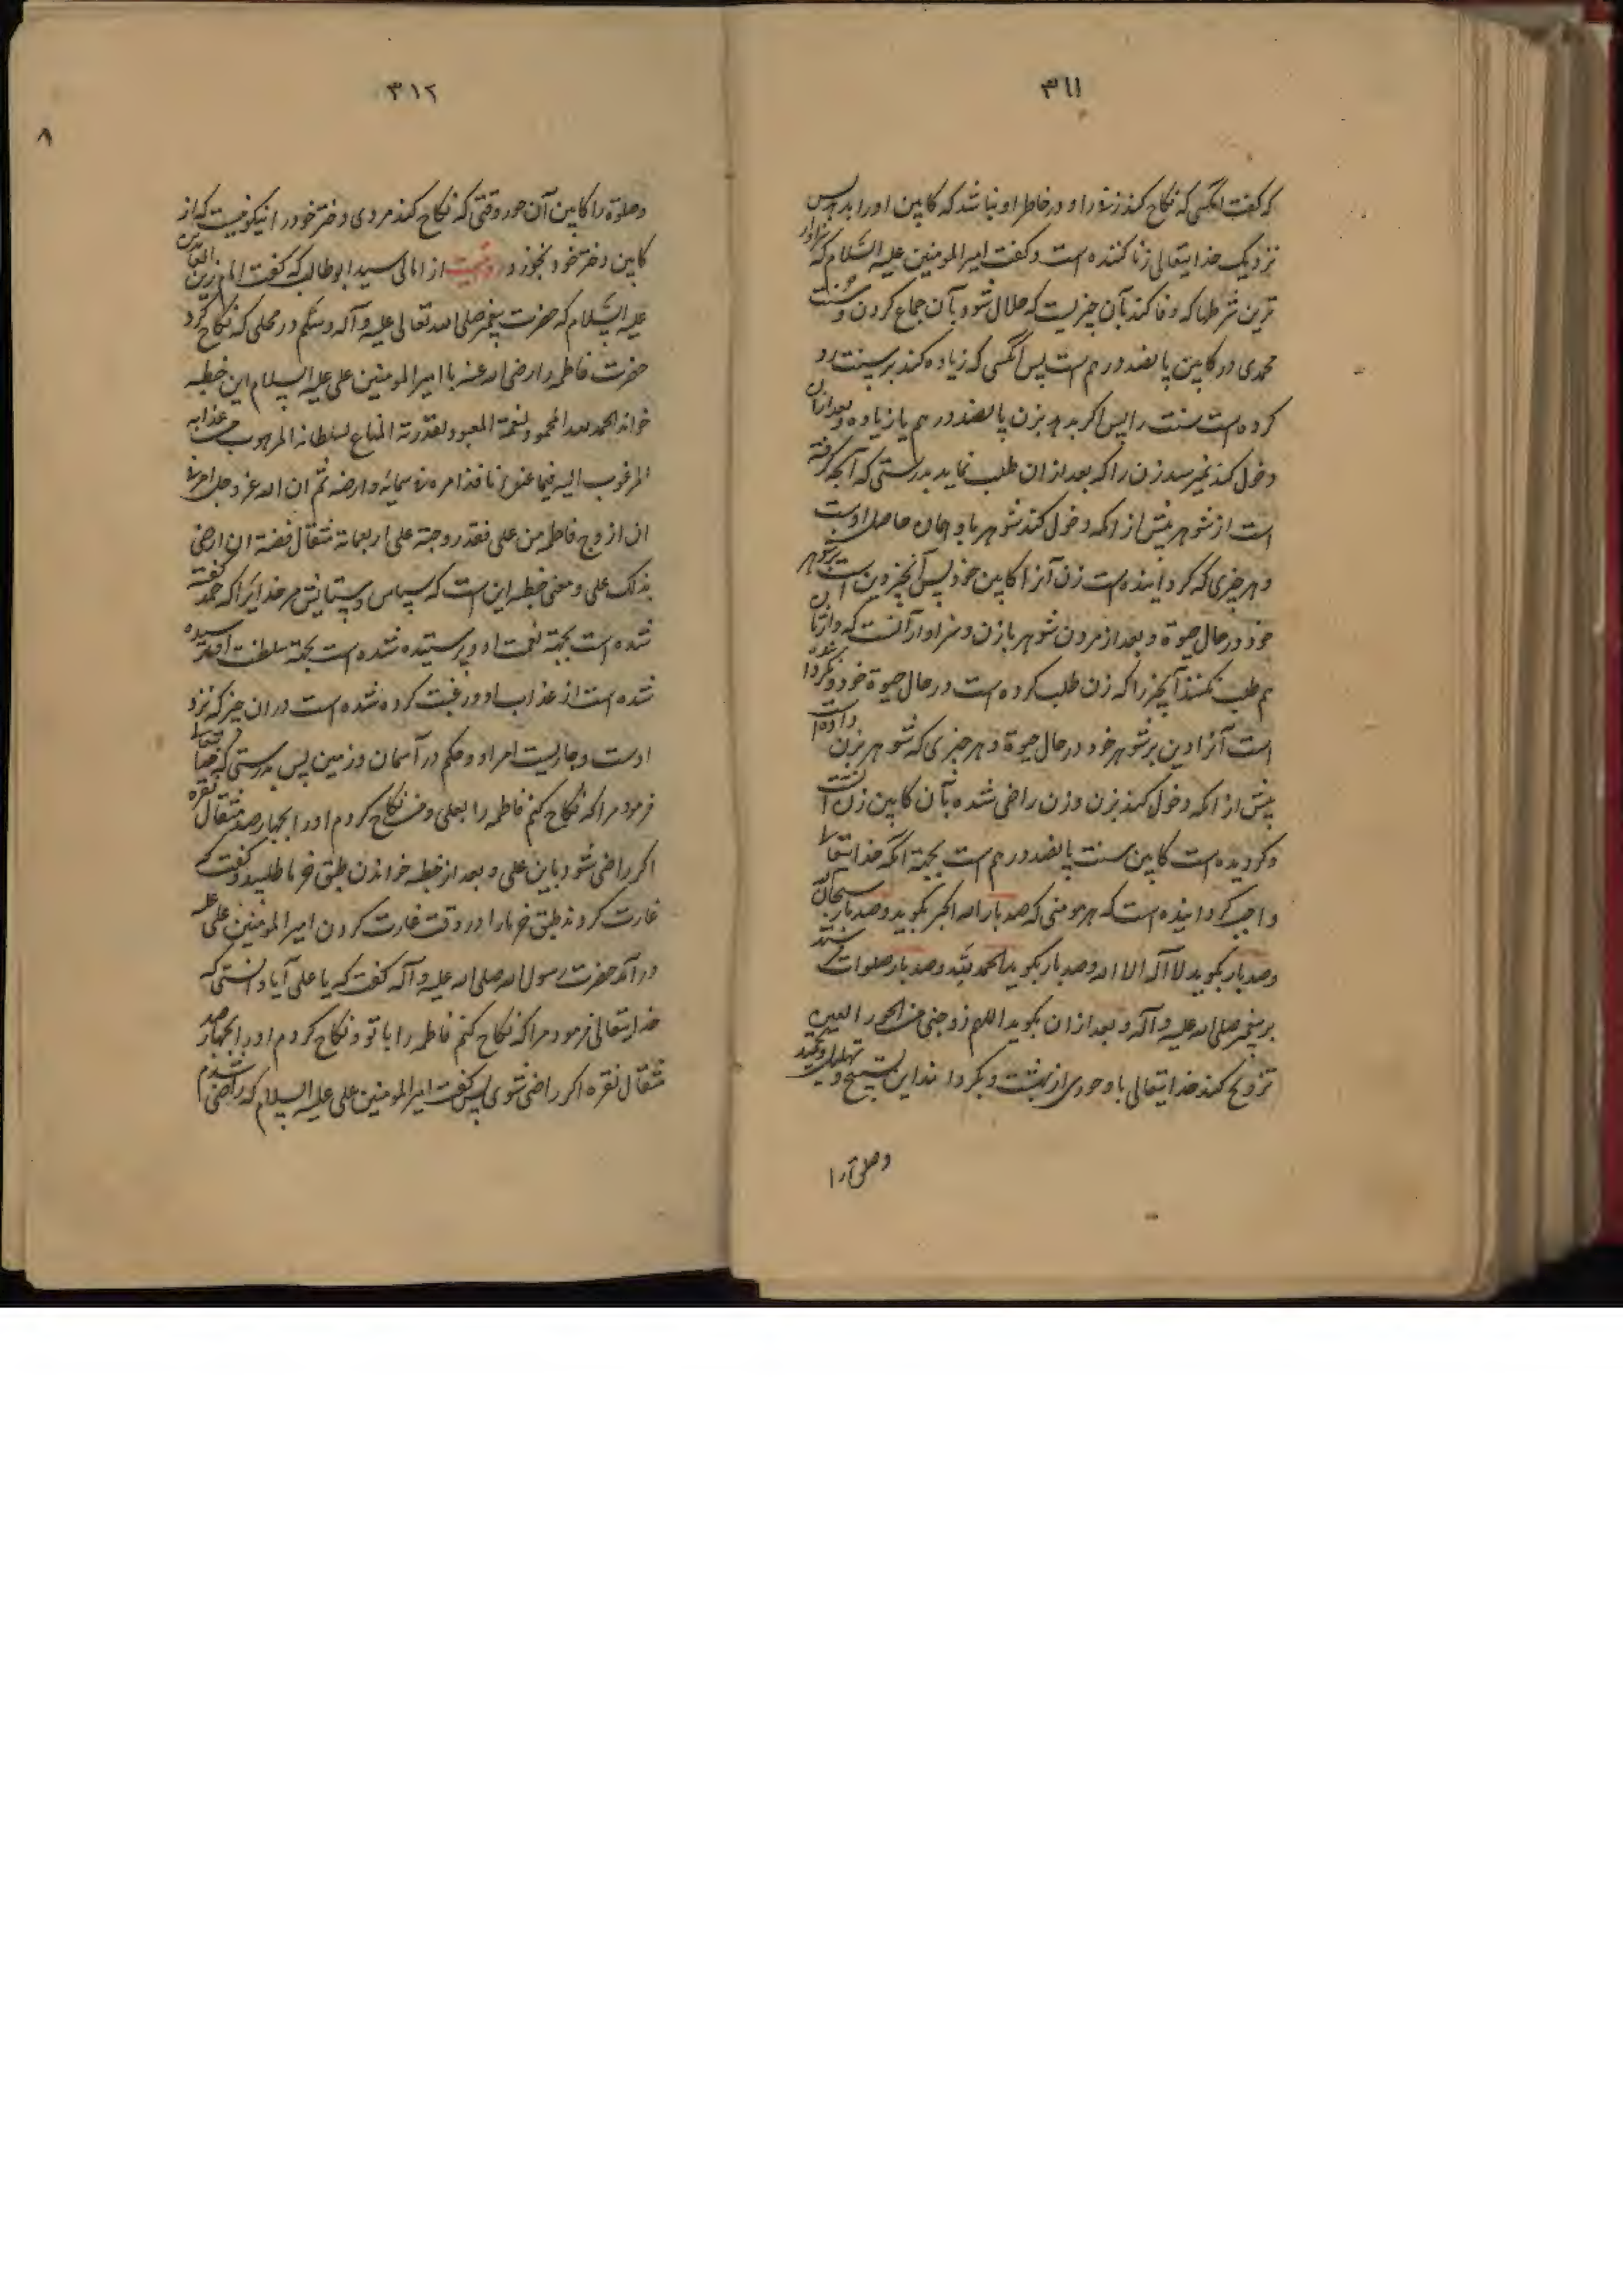 ۳۱۱
که گفت انکسی که نکاح کند زنی را و در خاطر او نباشد که کابین او را بدهد پس
نزدیک خدایتعالی زنا کننده است و گفت امیر المومنین علیه السلام که سزاوار
ترین شرطها که وفا کند بآن چیزیست که حلال شود بآن جماع کردن و سنت
محمدی در کابین پانصد درهم است پس انکسی که زیاده کند بر سنت رد
کرده است سنت را پس اگر بدهد بزن پانصد درهم یا زیاده و بعد از آن
دخول کند نمیرسد زن را که بعد از ان طلب نماید بدرستی که آنچه گرفته
است از شوهر پیش از انکه دخول کند شوهر باو همان حاصل اوست
و هر چیزی که گردانیده است زن آنرا کابین خود پس آنچیز دین است بر شوهر
خود در حال حیوة و بعد از مردن شوهر یا زن و سزاوار آنست که وارثان
هم طلب نکنند آنچیز را که زن طلب نکرده است در حال حیوة خود و نگردانیده
است آنرا دین بر شوهر خود در حال حیوة و هر چیزی که شوهر بزن داده است
پیش از انکه دخول کند بزن و زن راضی شده بآن کابین زن آنست
و گردیده است کابین سنت پانصد درهم است بجهة انکه خدایتعالی
واجب گردانیده است که هر مومنی که صد بار الله اکبر بگوید و صد بار سبحان الله
و صد بار بگوید لا آله الا الله و صد بار بگوید الحمد لله و صد بار صلوات فرستد
بر پیغمبر صلی الله علیه و آله و بعد از ان بگوید اللهم زوجنی من الحور العین
تزویج کند خدایتعالی باو حوری از بهشت و بگرداند این تسبیح و تهلیل و تحمید
وصلوة را
۳۱۲
۸
وصلوة را کابین آن حور وقتی که نکاح کند مردی دختر خود را نیکو نیست که از
کابین دختر خود بخورد روایت از امالی سید ابوطالب که گفت امام زین العابدین
علیه السلام که حضرت پیغمبر صلی الله تعالی علیه و آله وسلم در محلی که نکاح کرد
حضرت فاطمه را رضی الله عنها با امیر المومنین علی علیه السلام این خطبه
خواند الحمد لله المحمود لنعمة المعبود لقدرته المطاع لسلطانه المرهوب من عذابه
المرغوب الیه فیما عنده نافذ امره فی سمائه و ارضه ثم ان الله عز و جل امرنی
ان ازوج فاطمه من علی فقد زوجته علی اربعمائة مثقال فضة ان ارضی
بذلک علی و معنی خطبه این است که سپاس و ستایش مر خدایرا که حمد گفته
شده است بجهة نعمت او و پرستیده شده است بجهة سلطنت او ترسیده
شده است از عذاب او و رغبت کرده شده است در ان چیز که نزد
اوست و جاریست امر او و حکم در آسمان و زمین پس بدرستی که خدایتعالی
فرمود مرا که نکاح کنم فاطمه را بعلی و من نکاح کردم او را بچهار صد مثقال نقره
اگر راضی شود باین علی و بعد از خطبه خواندن طبق خرما طلبید و گفت که
غارت کردند طبق خرما را در وقت غارت کردن امیر المومنین علی علیه
در آمد حضرت رسول الله صلی الله علیه و آله گفت که یا علی آیا دانستی که
خدایتعالی فرمود مرا که نکاح کنم فاطمه را با تو و نکاح کردم او را بچهار صد
مثقال نقره اگر راضی شوی پس گفت امیر المومنین علی علیه السلام که راضی شدم